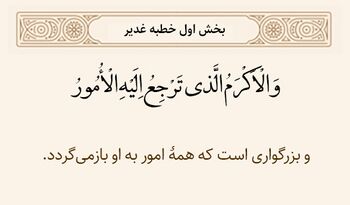 بخش اول خطبه غدیر
وَالْاَكْرَمُ الَّذی تَرْجِعُ اِلَیْهِ الْاُمُورُ
و بزرگواری است که همهٔ امور به او بازمی‌گردد.